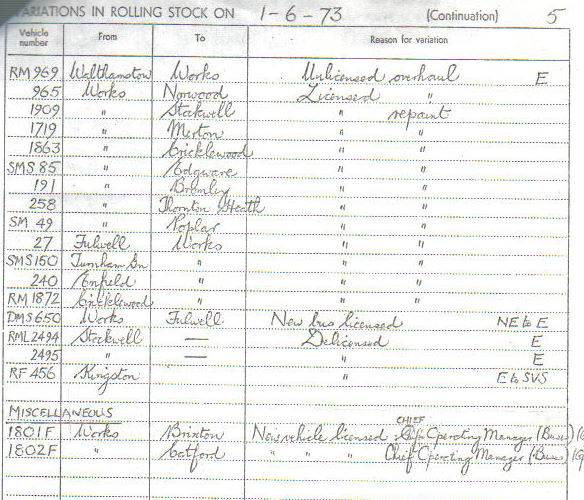 VARIATIONS IN ROLLING STOCK ON 1-6-73 (Continuation) 5
Vehicle number From To Reason for variation
RM 969 Walthamstow Works Unlicensed overhaul E
965 Works Norwood Licensed "
1909 " Stockwell " repaint
1719 " Merton " "
1863 " Cricklewood " "
SMS 85 " Edgware " "
191 " Bromley " "
258 " Thornton Heath " "
SM 49 " Poplar " "
27 Fulwell Works " "
SMS 150 Turnham Gn " " "
240 Enfield " " "
RM 1872 Cricklewood " " "
DMS 650 Works Fulwell New bus licensed NE to E
RML 2494 Stockwell — Delicensed E
2495 " — " E
RF 456 Kingston " E to SVS
MISCELLANEOUS
1801F Works Brixton New vehicle licensed CHIEF Operating Manager (Buses)
1802F " Catford " " " Chief Operating Manager (Buses)